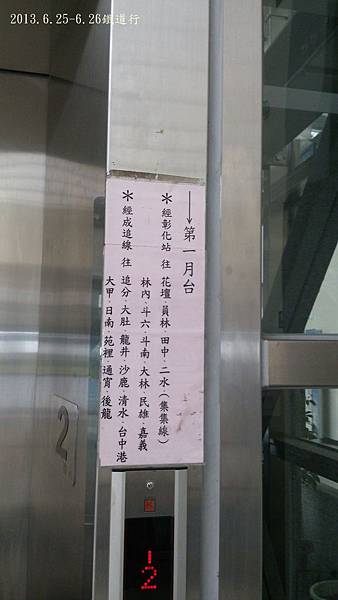 2013.6.25-6.26鐵道行
→第一月台
＊經彰化站 往 花壇.員林.田中.二水(集集線)
林內.斗六.斗南.大林.民雄.嘉義
＊經成追線 往 追分.大肚.龍井.沙鹿.清水.台中港
大甲.日南.苑裡.通宵.後龍
2
2